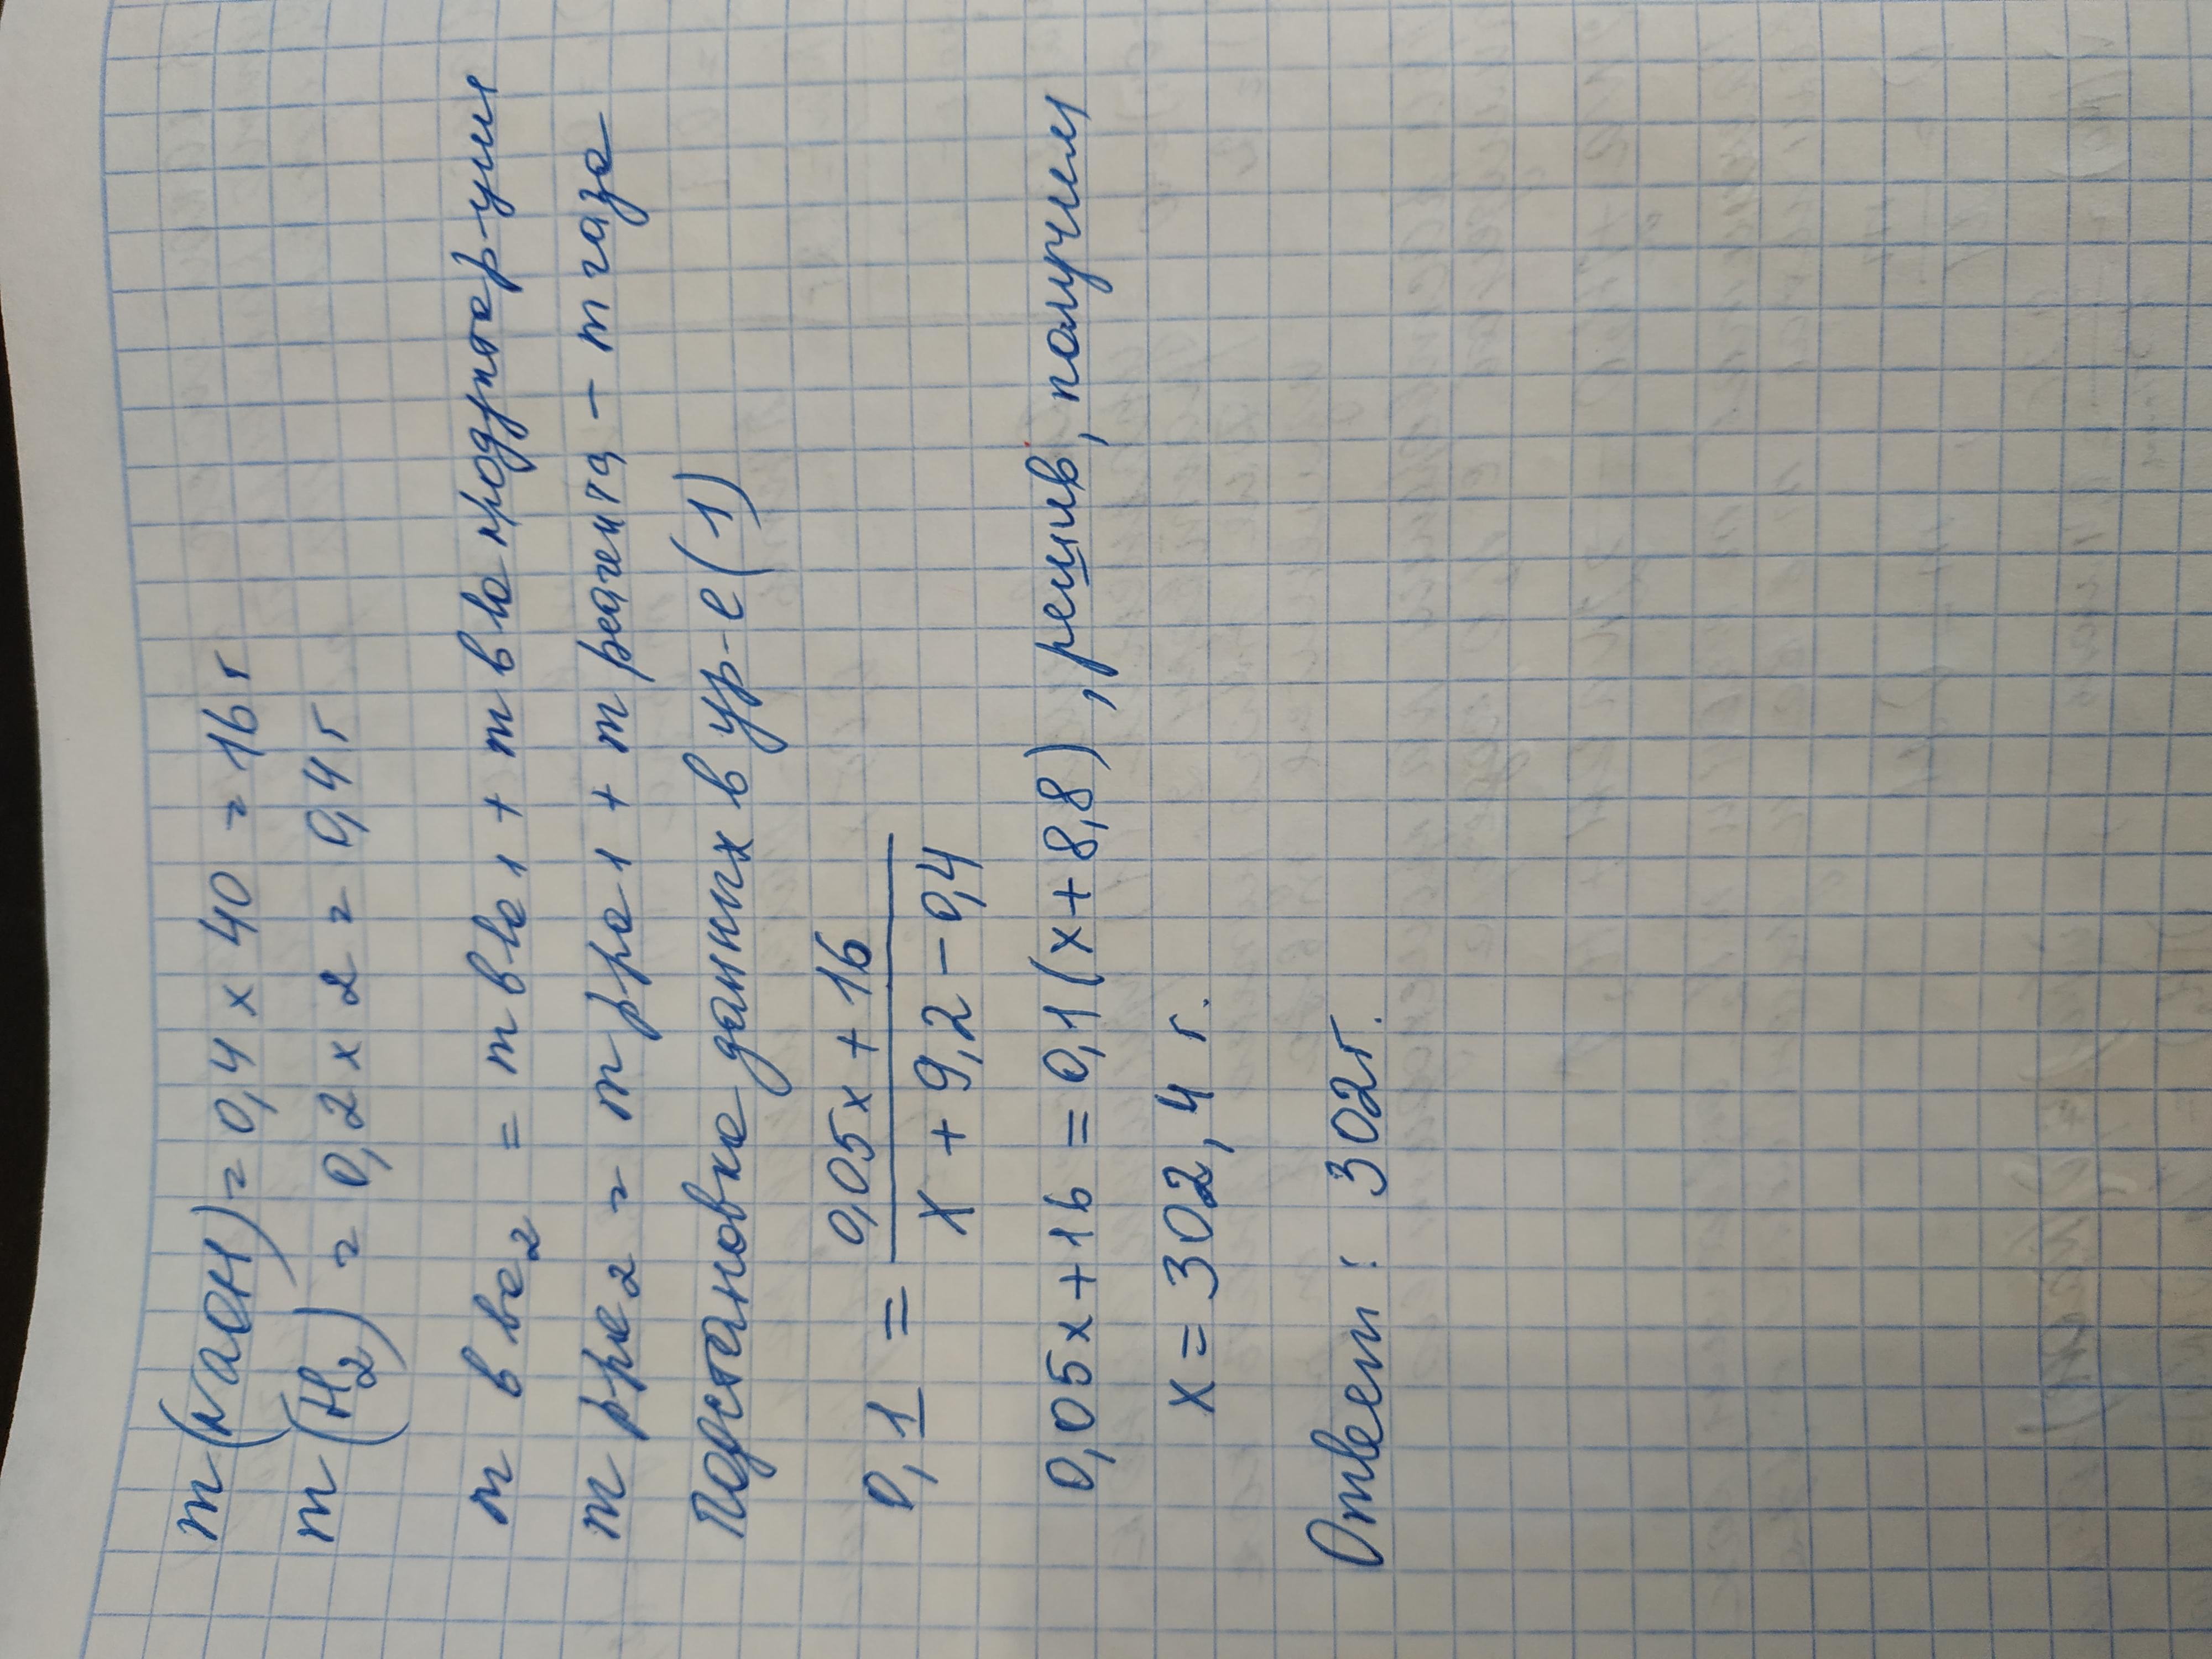 m(NaOH) = 0,4 x 40 = 16 г
m(H₂) = 0,2 x 2 = 0,4 г
m в ва₂ = m в ва 1 + m в ва продукта р-ции
m рра 2 = m рра 1 + m реагента - m газа
Подстановка данных в ур-е (1)
0,1 = (0,05x + 16) / (x + 9,2 - 0,4)
0,05x + 16 = 0,1(x + 8,8), решив, получим
x = 302,4 г.
Ответ: 302г.